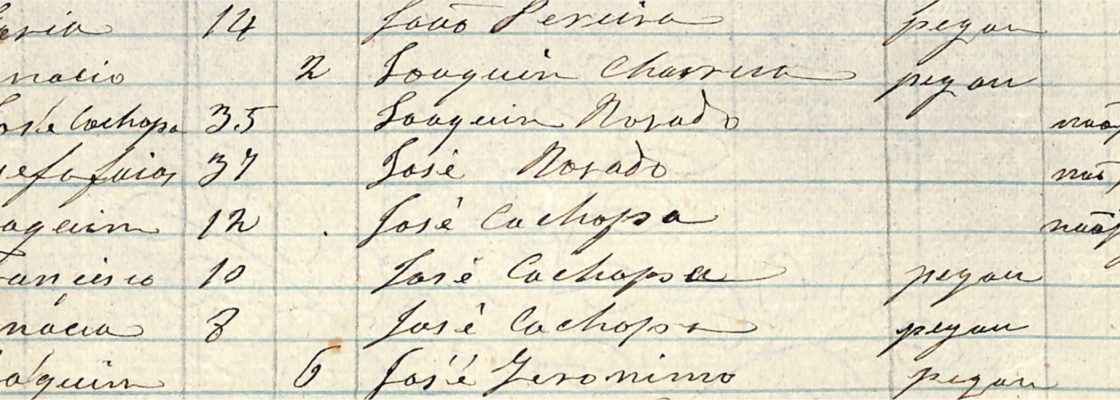 aria 14 João Pereira pegou
nacio 2 Joaquim Charrua pegou
José Cachopa 35 Joaquim Rosado não
37 José Rosado não
aquim 12 José Cachopa não
rancisco 10 José Cachopa pegou
nacia 8 José Cachopa pegou
oaquim 6 José Jeronimo pegou